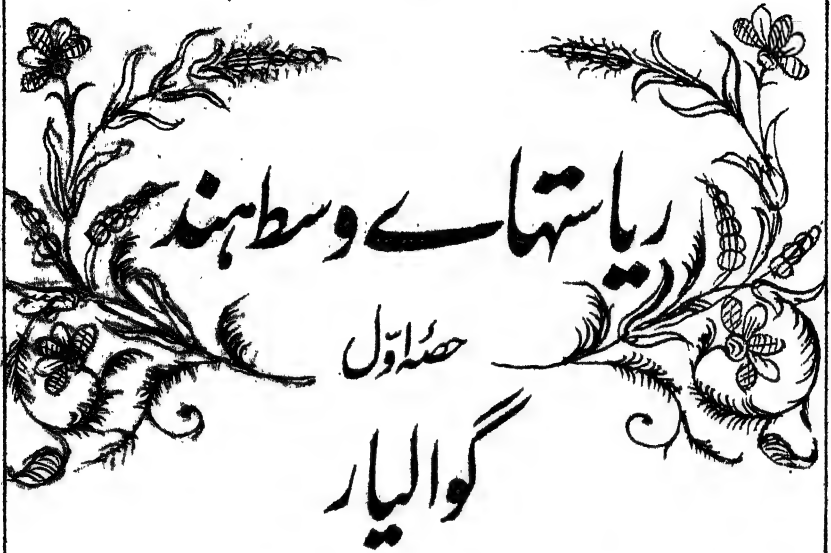 ریاستہاے وسط ہند
حصۂ اوّل
گوالیار